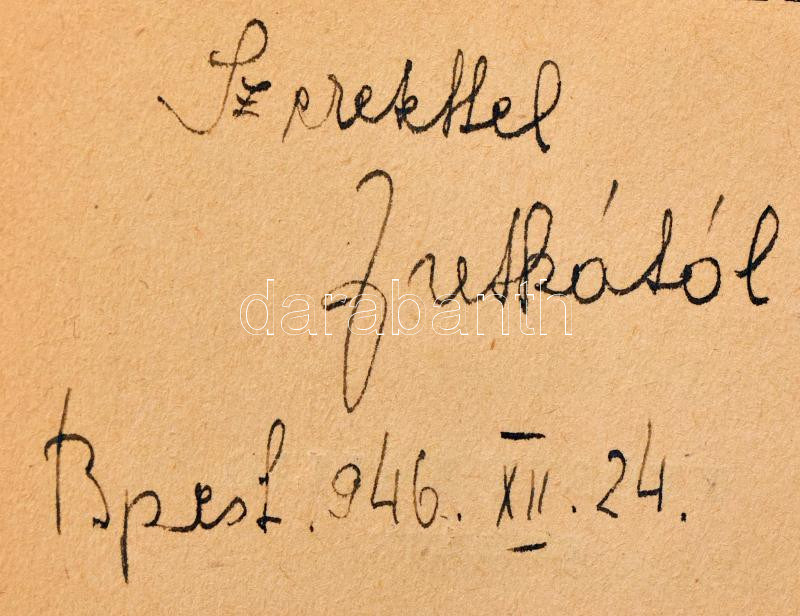 Szeretettel
Jutkától
darabanth
Bpest. 946. XII. 24.